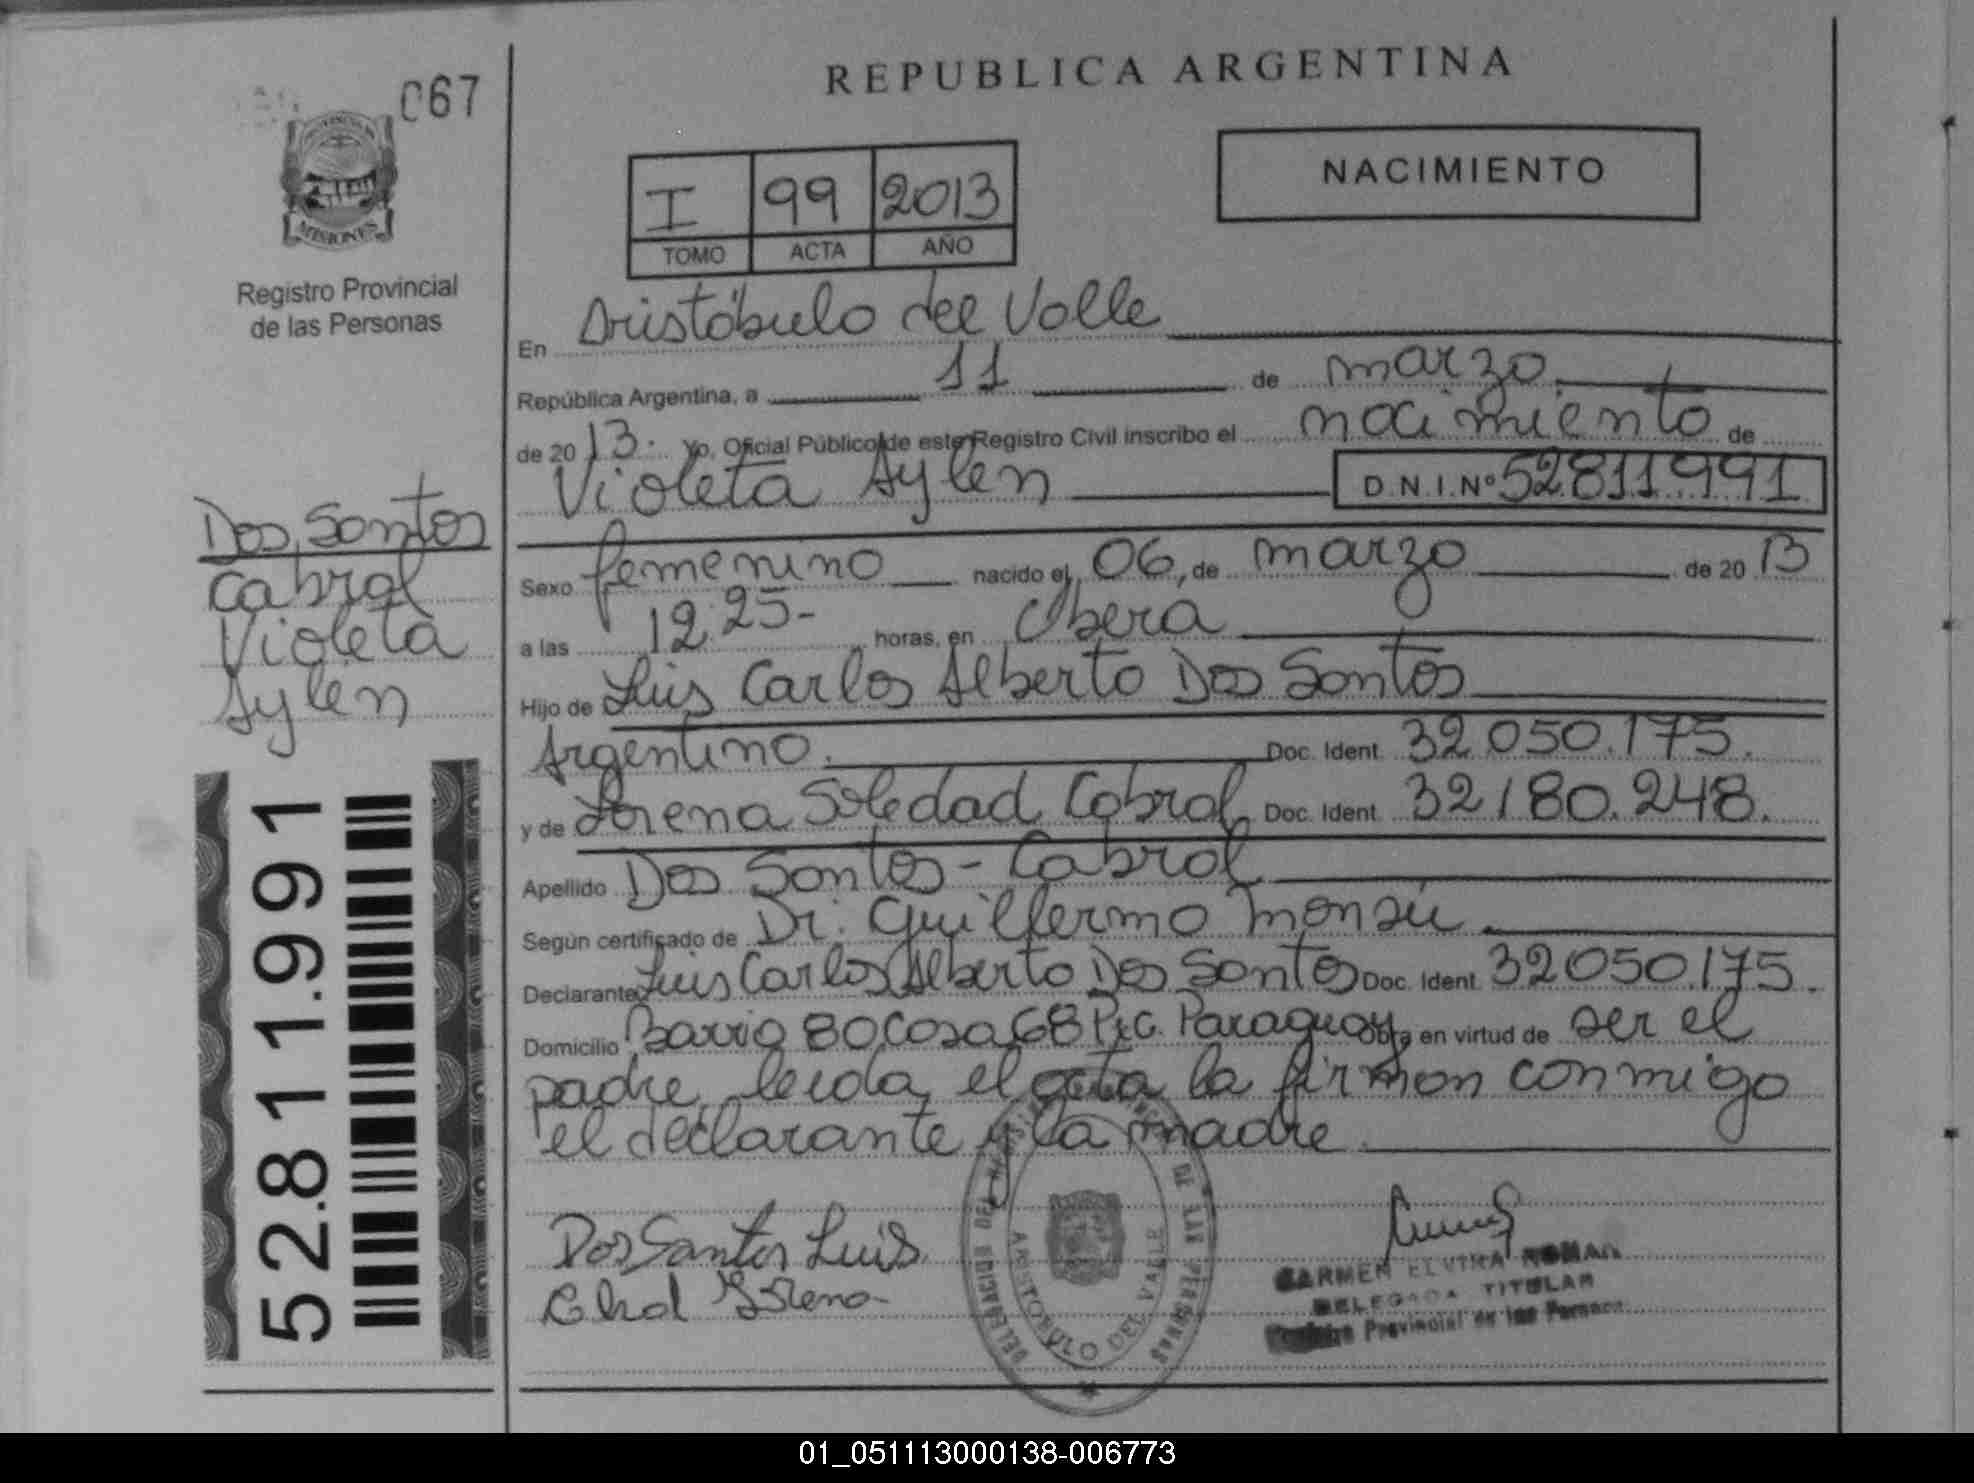 067
MISIONES
Registro Provincial
de las Personas
Dos Santos
Cabral
Violeta
Aylen
52.811.991
REPUBLICA ARGENTINA
NACIMIENTO
I 99 2013
TOMO ACTA AÑO
En Aristóbulo del Valle
República Argentina, a 11 de marzo
de 2013. Yo, Oficial Público de este Registro Civil inscribo el nacimiento de
Violeta Aylen D.N.I.Nº 52811991
Sexo femenino nacido el 06, de marzo de 2013
a las 12:25- horas, en Oberá
Hijo de Luis Carlos Alberto Dos Santos
Argentino. Doc. Ident. 32.050.175.
y de Lorena Soledad Cabral Doc. Ident. 32180.248.
Apellido Dos Santos - Cabral
Según certificado de Dr. Guillermo Monsú
Declarante Luis Carlos Alberto Dos Santos Doc. Ident. 32050.175.
Domicilio Barrio 80 Casa 68 Pic. Paraguay Obra en virtud de ser el
padre leida el acta la firman conmigo
el declarante y la madre.
Dos Santos Luis
CARMEN ELVIRA ROMAN
DELEGADA TITULAR
Registro Provincial de las Personas
ARISTOBULO DEL VALLE
01_051113000138-006773